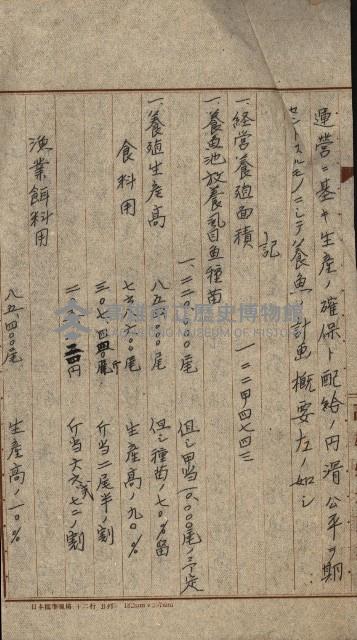 運営ニ基キ生産ノ確保ト配給ノ円滑公平ヲ期
セントスルモノニシテ養魚計画概要左ノ如シ
記
一、経営養殖面積 一二二甲四七四三
一、養魚池放養虱目魚種苗
一、二二〇、〇〇〇尾 但シ甲当一〇、〇〇〇尾ノ予定
一、養殖生産高 八五四、〇〇〇尾 但シ種苗ノ七〇%留
食料用 七六八、六〇〇尾 生産高ノ九〇%
三〇七、四四〇斤 斤当二尾半ノ割
円 斤当 ノ割
漁業餌料用 八五、四〇〇尾 生産高ノ一〇%
高雄市立歷史博物館
KAOHSIUNG MUSEUM OF HISTORY
日本標準規格 十二行 B列5 182mm×257mm